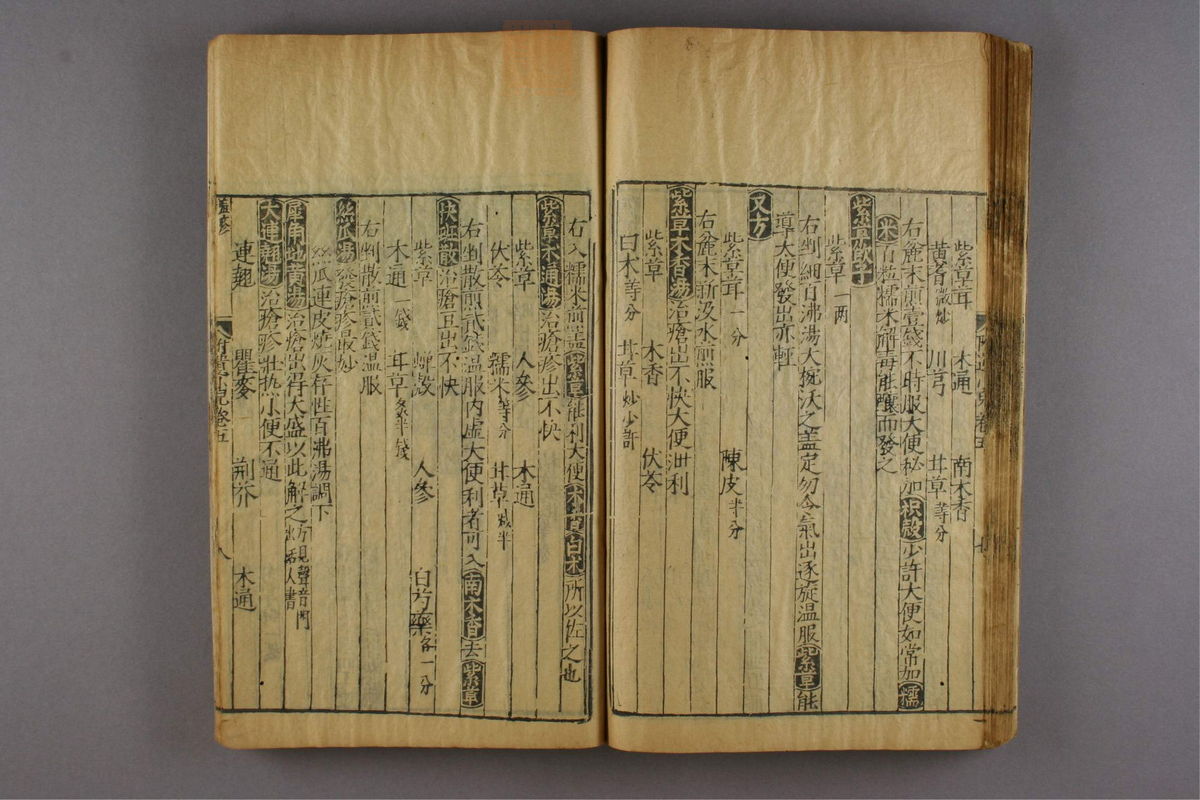 紫草茸　木通　南木香
黄耆微炒　川芎　甘草等分
右麄末煎壹錢不時服大便秘加枳殼少許大便如常加糯
米百粒糯米解毒能釀而發之
紫草飲子
紫草一两
右剉細百沸湯大椀沃之盖定勿令氣出逐旋温服紫草能
導大便發出亦輕
又方
紫草茸一分　陳皮半分
右麄末新汲水煎服
紫草木香湯治瘡出不快大便泄利
紫草　木香　伏苓
白术等分　甘草炒少許
右入糯米煎盖紫草能利大便木香白术所以佐之也
紫草木通湯治瘡疹出不快
紫草　人參　木通
伏苓　糯米等分　甘草减半
右剉散煎貳錢温服内虚大便利者可入南木香去紫草
快斑散治瘡豆出不快
紫草　蟬殼　人參　白芍藥各一分
木通一錢　甘草炙半錢
右剉散煎貳錢温服
絲瓜湯發瘡疹最妙
絲瓜連皮燒灰存性百沸湯調下
犀角地黄湯治瘡出得大盛以此解之方見聲音門出活人書
大連翹湯治瘡疹壮热小便不通
連翹　瞿麥　荆芥　木通
瘡疹
八